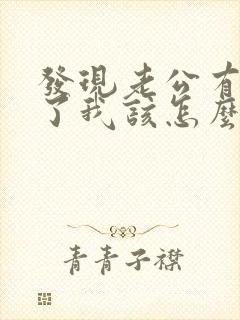 發現老公有
了我該怎麼
青青子襟